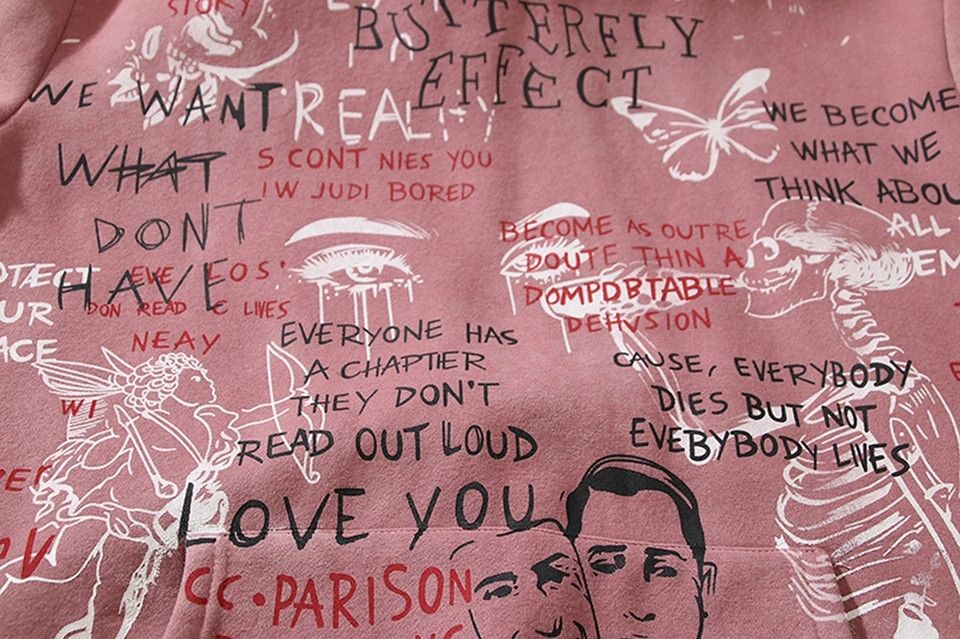 STORY
BUTTERFLY
EFFECT
WE WANT
WHAT
DONT
HAVE
REALITY
S CONT NIES YOU
IW JUDI BORED
WE BECOME
WHAT WE
THINK ABOU
ALL
EM
BECOME AS OUTRE
DOUTE THIN A
DOMPDBTABLE
DEHVSION
OTÆCT
UR
ACE
EVE LOS'
DON READ C LIVES
NEAY
EVERYONE HAS
A CHAPTIER
THEY DON'T
READ OUT LOUD
CAUSE, EVERYBODY
DIES BUT NOT
EVEBYBODY LIVES
WI
LOVE YOU
CC•PARISON